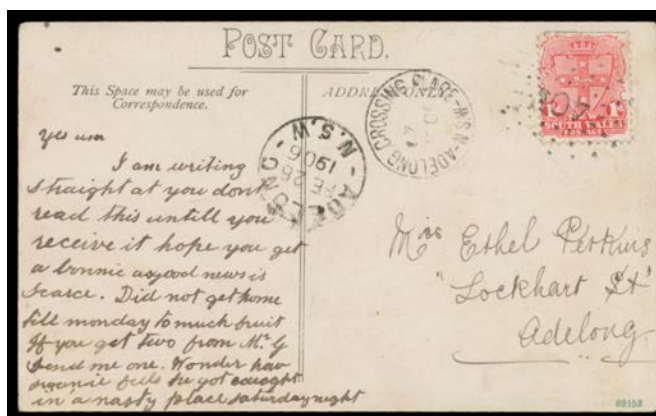 POST CARD.
This Space may be used for
Correspondence.
ADDRESS ONLY.
Yes um
I am writing
straight at you dont
read this untill you
receive it hope you get
a bonnie as good news is
scarce. Did not get home
till monday to much fruit
If you get two from Mr G
send me one. Wonder how
swannie feels he got caught
in a nasty place saturday night
ADELONG CROSSING PLACE - N.S.W
ADELONG - N.S.W.
FE 28
1906
SOUTH WALES
POSTAGE
1
Miss Ethel Perkins
"Lockhart St"
Adelong
89152